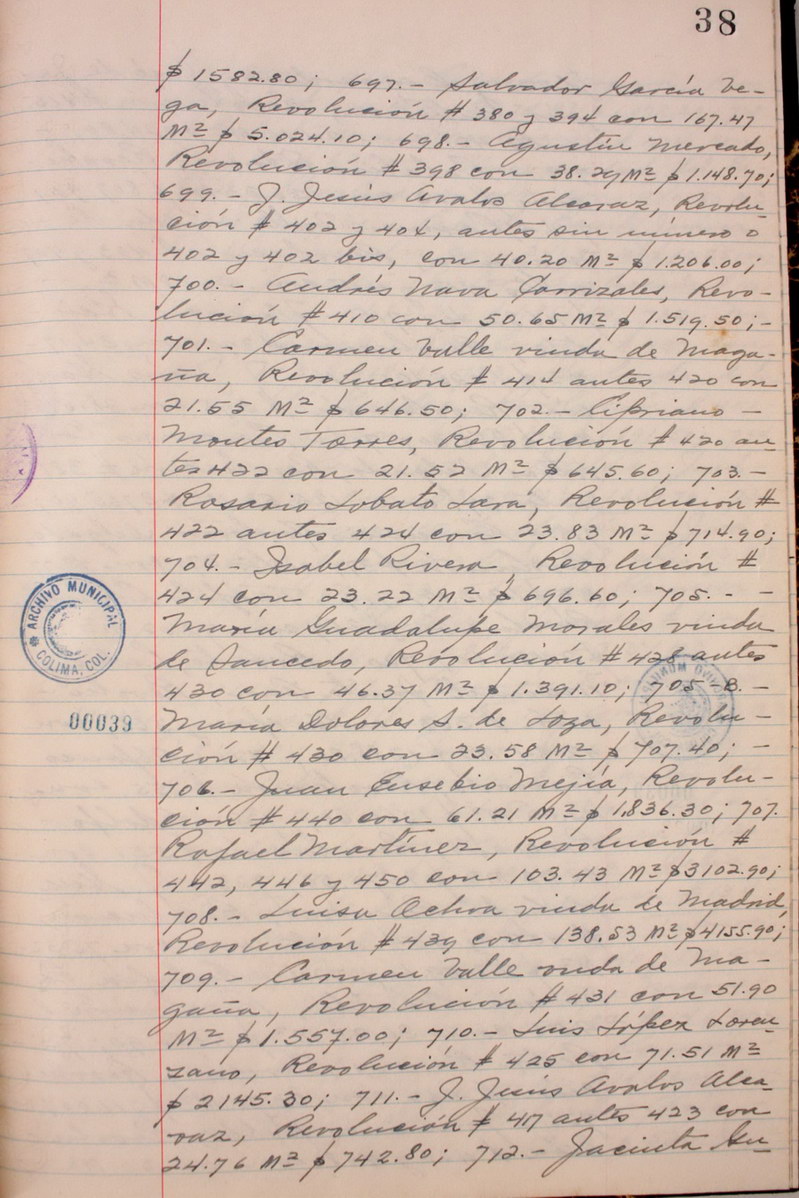 38
$1582.80; 697.- Salvador García Ve-
ga, Revolución # 380 y 394 con 167.47
M² $5.024.10; 698.- Agustín Mercado,
Revolución # 398 con 38.29 M² $1.148.70;
699.- J. Jesús Avalos Alcaraz, Revolu-
ción # 402 y 404, antes sin número o
402 y 402 bis, con 40.20 M² $1.206.00;
700.- Andrés Nava Carrizales, Revo-
lución # 410 con 50.65 M² $1.519.50;-
701.- Carmen Valle viuda de Maga-
ña, Revolución # 414 antes 420 con
21.55 M² $646.50; 702.- Cipriano -
Montes Torres, Revolución # 420 an-
tes 422 con 21.52 M² $645.60; 703.-
Rosario Lobato Lara, Revolución #
422 antes 424 con 23.83 M² $714.90;
704.- Isabel Rivera, Revolución #
424 con 23.22 M² $696.60; 705.- -
María Guadalupe Morales viuda
de Saucedo, Revolución # 428 antes
430 con 46.37 M² $1.391.10; 705-B.-
María Dolores S. de Loza, Revolu-
ción # 430 con 23.58 M² $707.40; -
706.- Juan Eusebio Mejía, Revolu-
ción # 440 con 61.21 M² $1,836.30; 707.
Rafael Martínez, Revolución #
442, 446 y 450 con 103.43 M² $3102.90;
708.- Luisa Ochoa viuda de Madrid,
Revolución # 439 con 138.53 M² $4155.90;
709.- Carmen Valle vuda de Ma-
gaña, Revolución # 431 con 51.90
M² $1.557.00; 710.- Luis López Loren-
zano, Revolución # 425 con 71.51 M²
$2145.30; 711.- J. Jesús Avalos Alca-
raz, Revolución # 417 antes 423 con
24.76 M² $742.80; 712.- Jacinta Gu-
ARCHIVO MUNICIPAL
COLIMA, COL.
00039